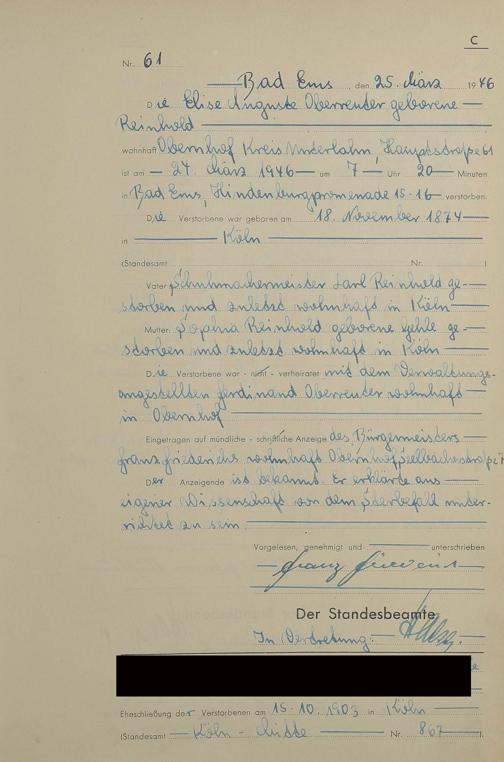 C
Nr. 61
Bad Ems, den 25. März 1946
Die Elise Auguste Oberreuter geborene
Reinhold
wohnhaft Obernhof Kreis Unterlahn, Hauptstraße 61
ist am 24. März 1946 um 7 Uhr 20 Minuten
in Bad Ems, Hindenburgpromenade 15-16 verstorben.
Die Verstorbene war geboren am 18. November 1874
in Köln
(Standesamt Nr. )
Vater Schuhmachermeister Carl Reinhold ge-
storben und zuletzt wohnhaft in Köln
Mutter: Sophia Reinhold geborene ge-
storben und zuletzt wohnhaft in Köln
Die Verstorbene war - nicht - verheiratet mit dem Verwaltungs-
angestellten Ferdinand Oberreuter wohnhaft
in Obernhof
Eingetragen auf mündliche - schriftliche Anzeige des Bürgermeisters
Franz Friederichs wohnhaft Obernhof Seelbacherstraße
Der Anzeigende ist bekannt. Er erklärte aus
eigener Wissenschaft von dem Sterbefall unter-
richtet zu sein.
Vorgelesen, genehmigt und unterschrieben
Franz
Der Standesbeamte
In Vertretung:
Eheschließung der Verstorbenen am 15.10.1903 in Köln
(Standesamt Köln - Mitte Nr. 867).